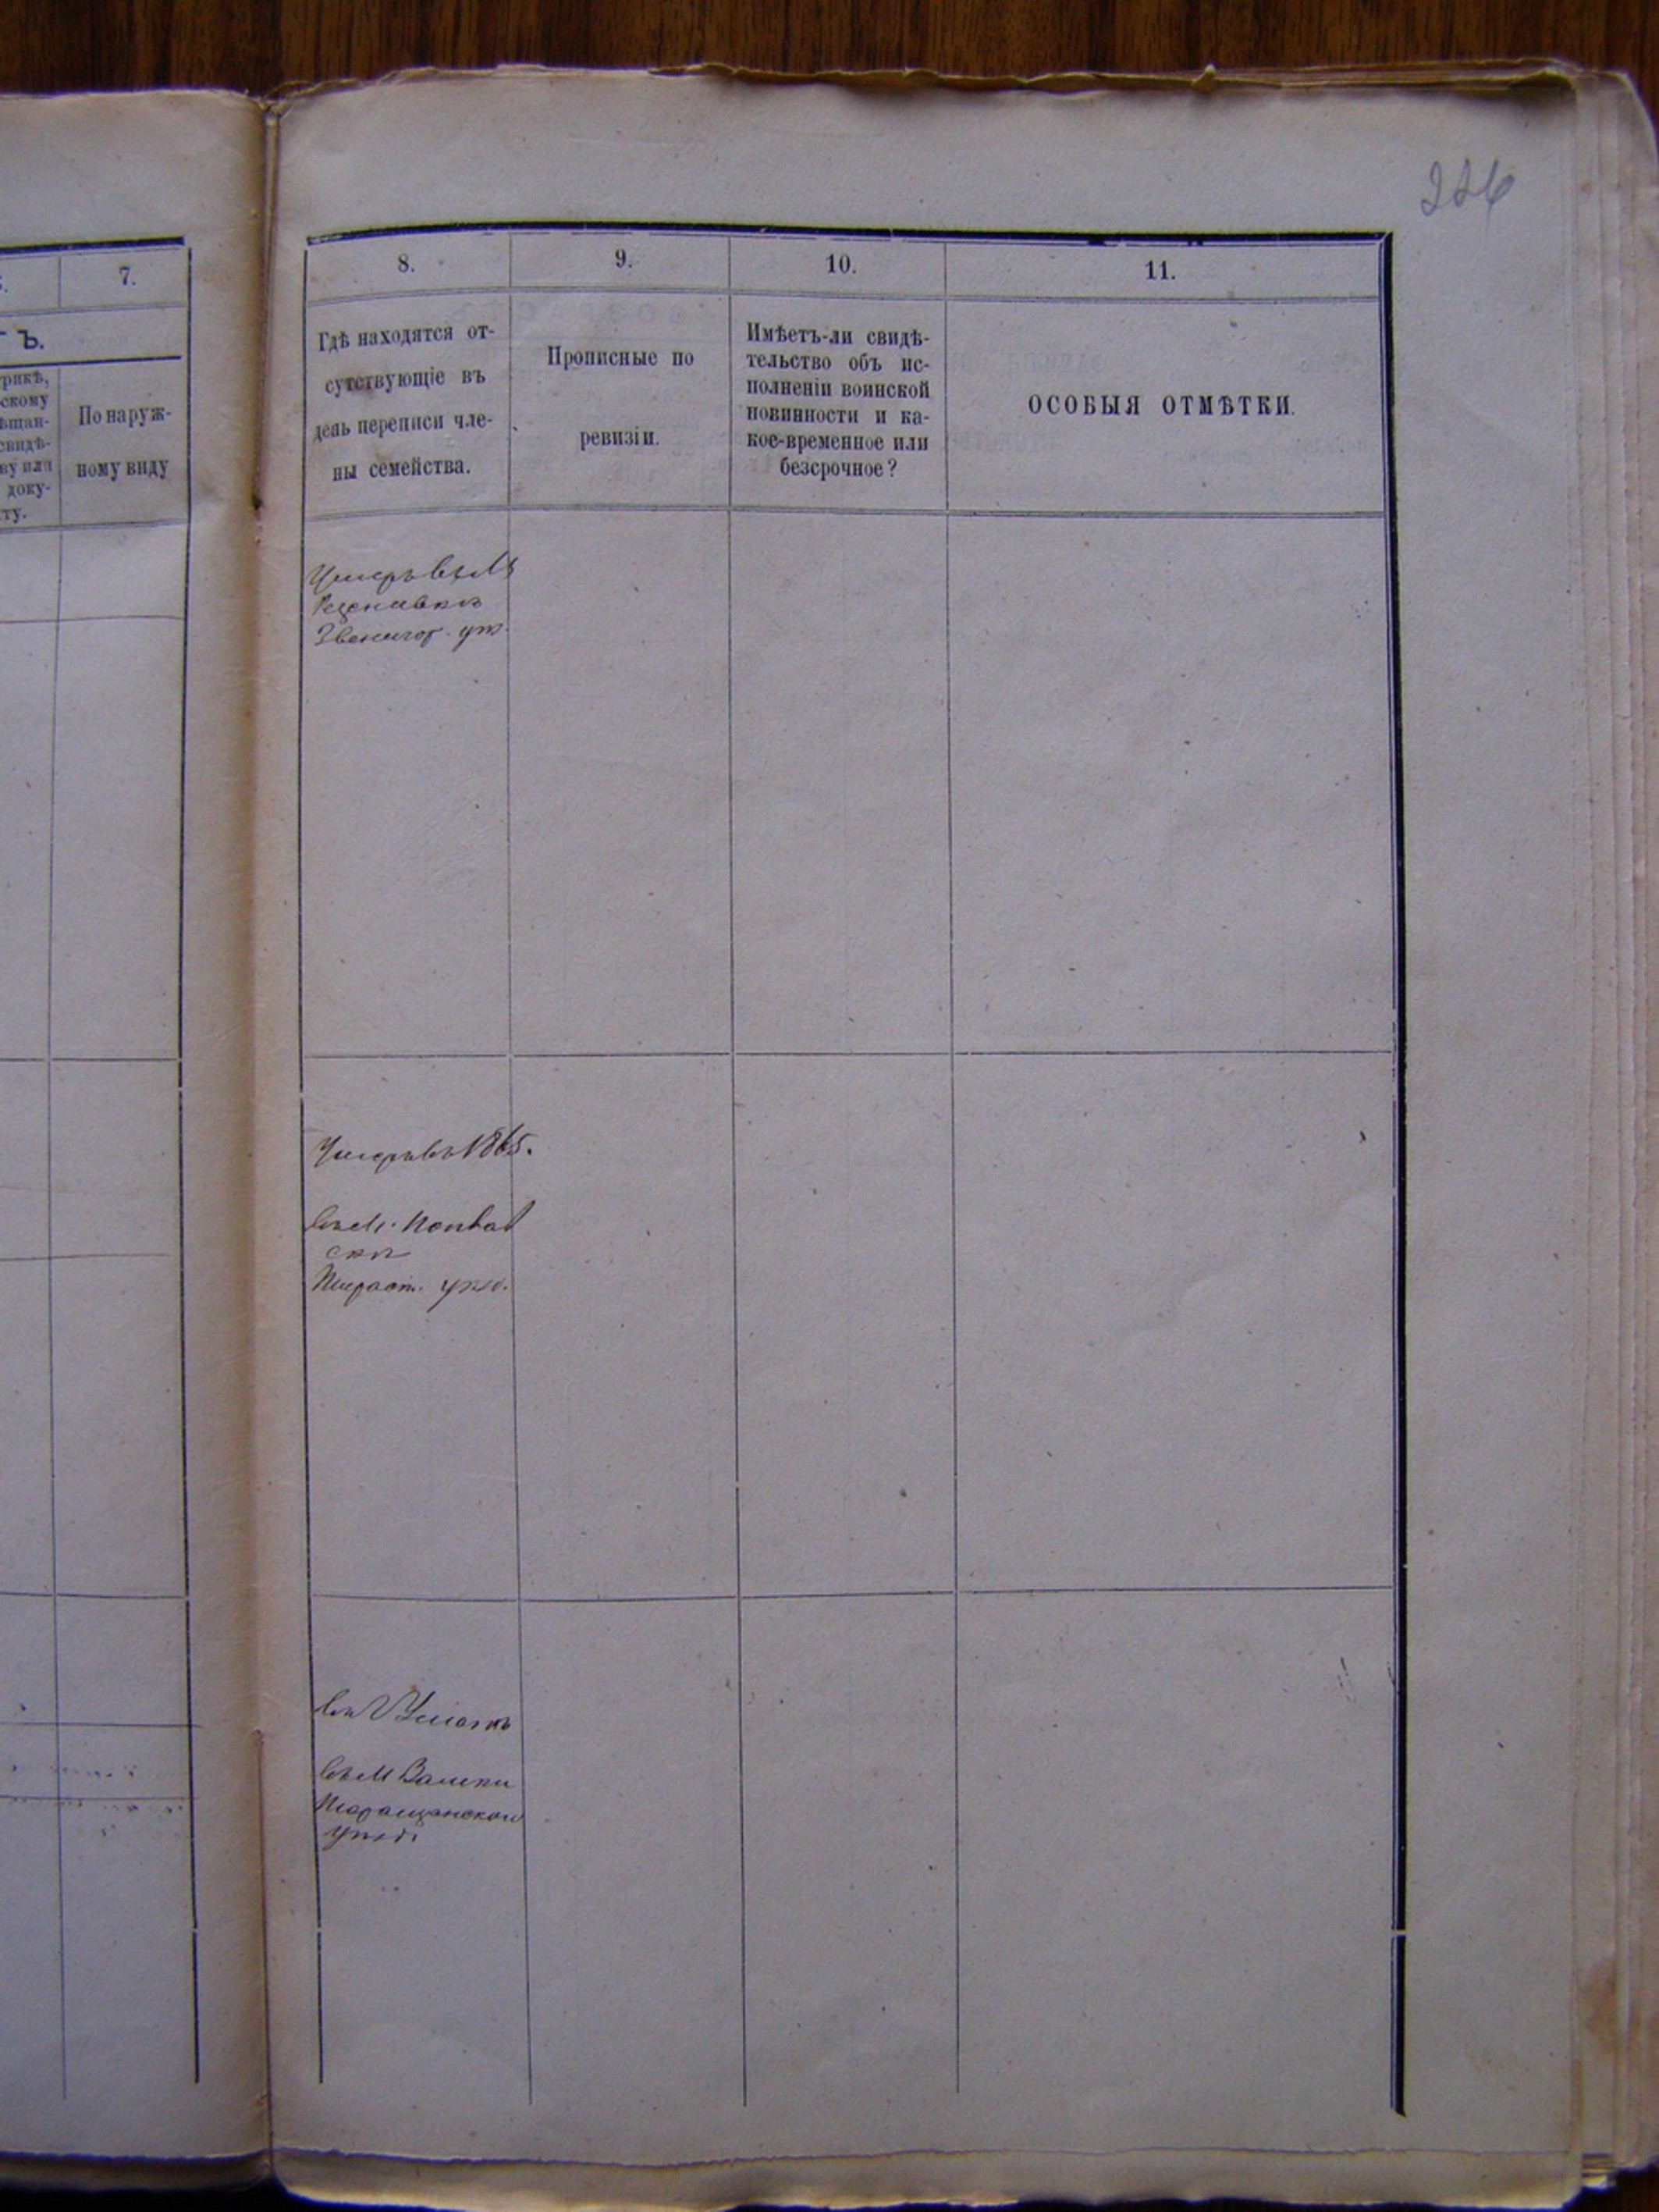 226
7.
Ъ.
рикѣ,
скому
ѣщан-
свидѣ-
ву или
доку-
ту.
По наруж-
ному виду
8.
9.
10.
11.
Гдѣ находятся от-
сутствующіе въ
день переписи чле-
ны семейства.
Прописные по
ревизіи.
Имѣетъ-ли свидѣ-
тельство объ ис-
полненіи воинской
повинности и ка-
кое-временное или
безсрочное?
ОСОБЫЯ ОТМѢТКИ.
Умеръ въ М
Звенигор. уѣз.
Умеръ въ 1865.
въ м.
Таращ. уѣзд.
въ Г Умань
въ М
Таращанскаго
уѣзд.